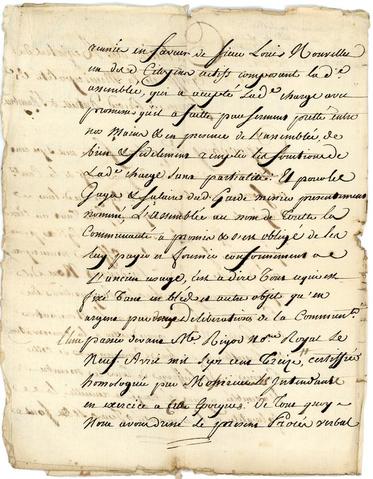 réunie en faveur de sieur Louis Nouvelle
un des d. Citoyens actifs composant lad.e
assemblée, qui a accepté lad.e charge avec
promesse qu'il a faitte par serment pretté entre
nos Mains & en presence de L'assemblée, de
bien & fidelement remplir les fonctions de
Lad.e charge sans partialité. Et pour les
Gages & futures dud. Garde messier presentement
nommé, L'assemblée au nom de Toutte la
Communauté a promis & s'est obligé de les
luy payer et fournir conformement a
L'ancien usage, c'est a dire Tout ce qui est
fixé Tant en bled et autre objet qu'en
argent par deux deliberations de la Commun.té
L'une passée devant M.e Rigod No.re Royal le
Neuf Avril mil sept cent Treize, certiffiée
homologuée par Monsieur L'Intendant
en exercice a cette Epoque. De Tout quoy
Nous avons dressé le present Procès verbal